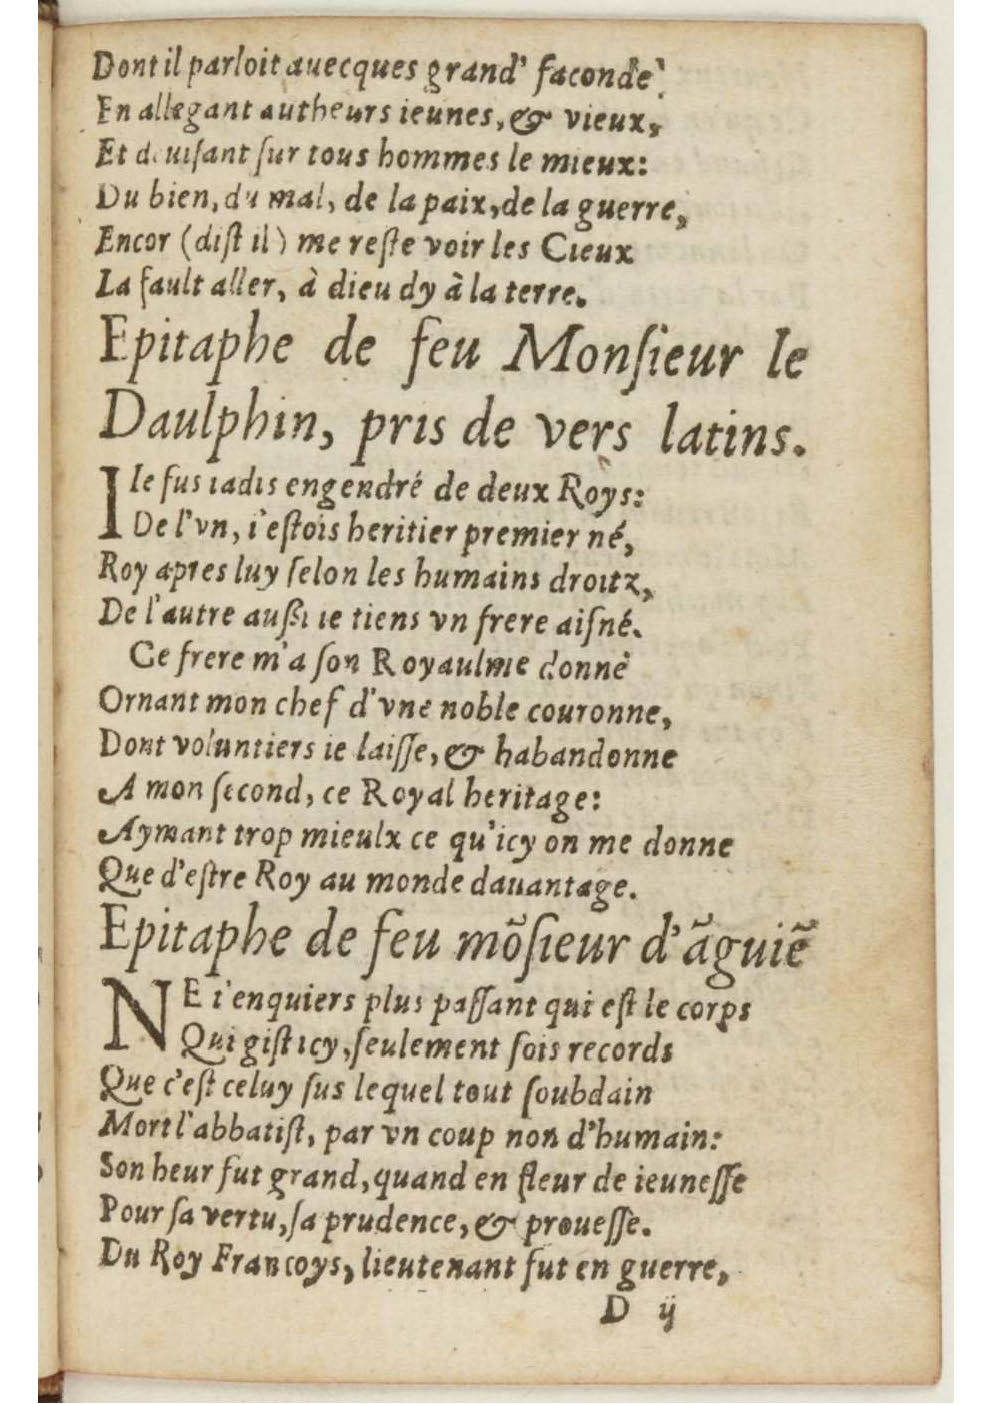 Dont il parloit auecques grand' faconde
En allegant autheurs ieunes, & vieux,
Et deuiſant ſur tous hommes le mieux:
Du bien, du mal, de la paix, de la guerre,
Encor (diſt il) me reſte voir les Cieux
La fault aller, à dieu dy à la terre.
Epitaphe de feu Monſieur le
Daulphin, pris de vers latins.
Ie fus iadis engendré de deux Roys:
De l'vn, i'eſtois heritier premier né,
Roy apres luy ſelon les humains droitz,
De l'autre auſſi ie tiens vn frere aiſné.
Ce frere m'a ſon Royaulme donné
Ornant mon chef d'vne noble couronne,
Dont voluntiers ie laiſſe, & habandonne
A mon ſecond, ce Royal heritage:
Aymant trop mieulx ce qu'icy on me donne
Que d'eſtre Roy au monde dauantage.
Epitaphe de feu mõſieur d'ãguiẽ
NE t'enquiers plus paſſant qui eſt le corps
Qui giſt icy, ſeulement ſois records
Que c'eſt celuy ſus lequel tout ſoubdain
Mort l'abbatiſt, par vn coup non d'humain:
Son heur fut grand, quand en fleur de ieuneſſe
Pour ſa vertu, ſa prudence, & proueſſe.
Du Roy Francoys, lieutenant fut en guerre,
D ij